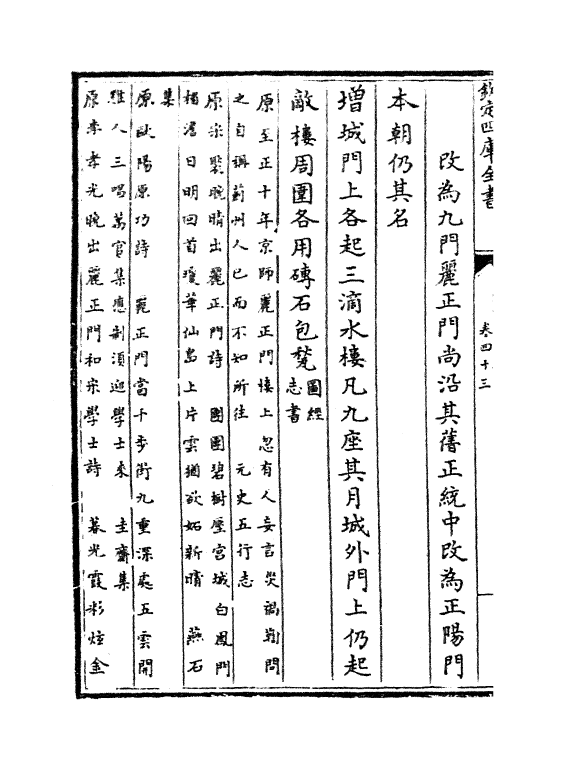 欽定四庫全書
卷四十三
改為九門麗正門尚沿其舊正統中改為正陽門
本朝仍其名
增城門上各起三滴水樓凡九座其月城外門上仍起
敵樓周圍各用磚石包甃圖經志書
原至正十年京師麗正門樓上忽有人妄言災禍鞫問
之自稱薊州人已而不知所往 元史五行志
原宋褧晚晴出麗正門詩 團團碧樹壓宮城白鳳門
楣澹日明回首瓊華仙島上片雲猶欲妬新晴 燕石
集
原歐陽原功詩 麗正門當千步街九重深處五雲開
雞人三唱萬官集應制須迎學士來 圭齋集
原李孝光晚出麗正門和宋學士詩 暮光霞彩炫金